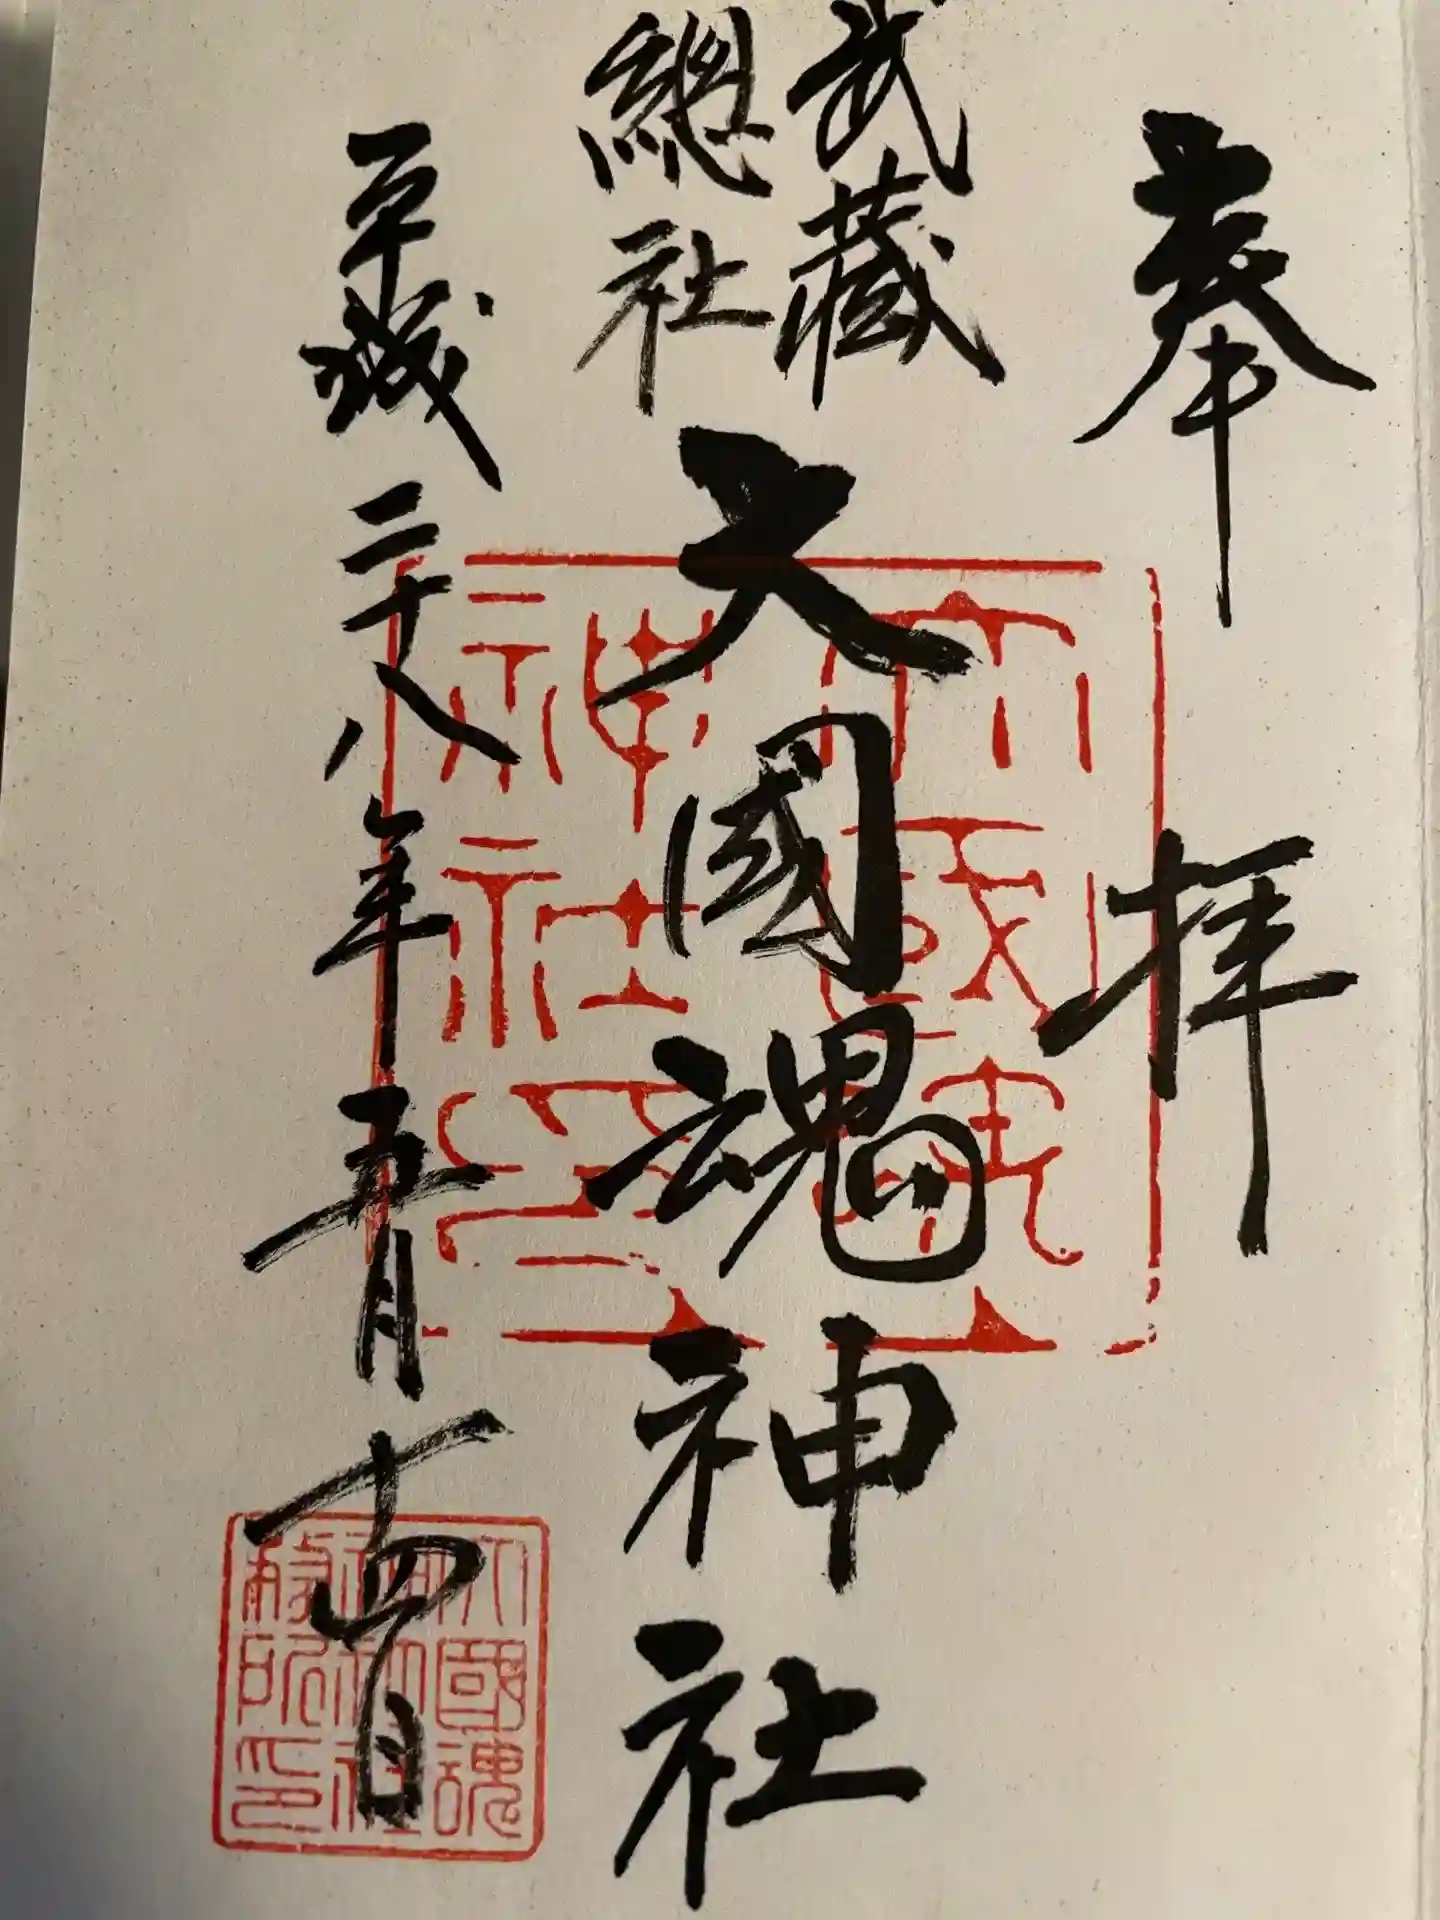 奉拝
武藏
總社
大國魂神社
平成二十八年五月十四日
大國魂
神社印
大國魂
神社
務所印